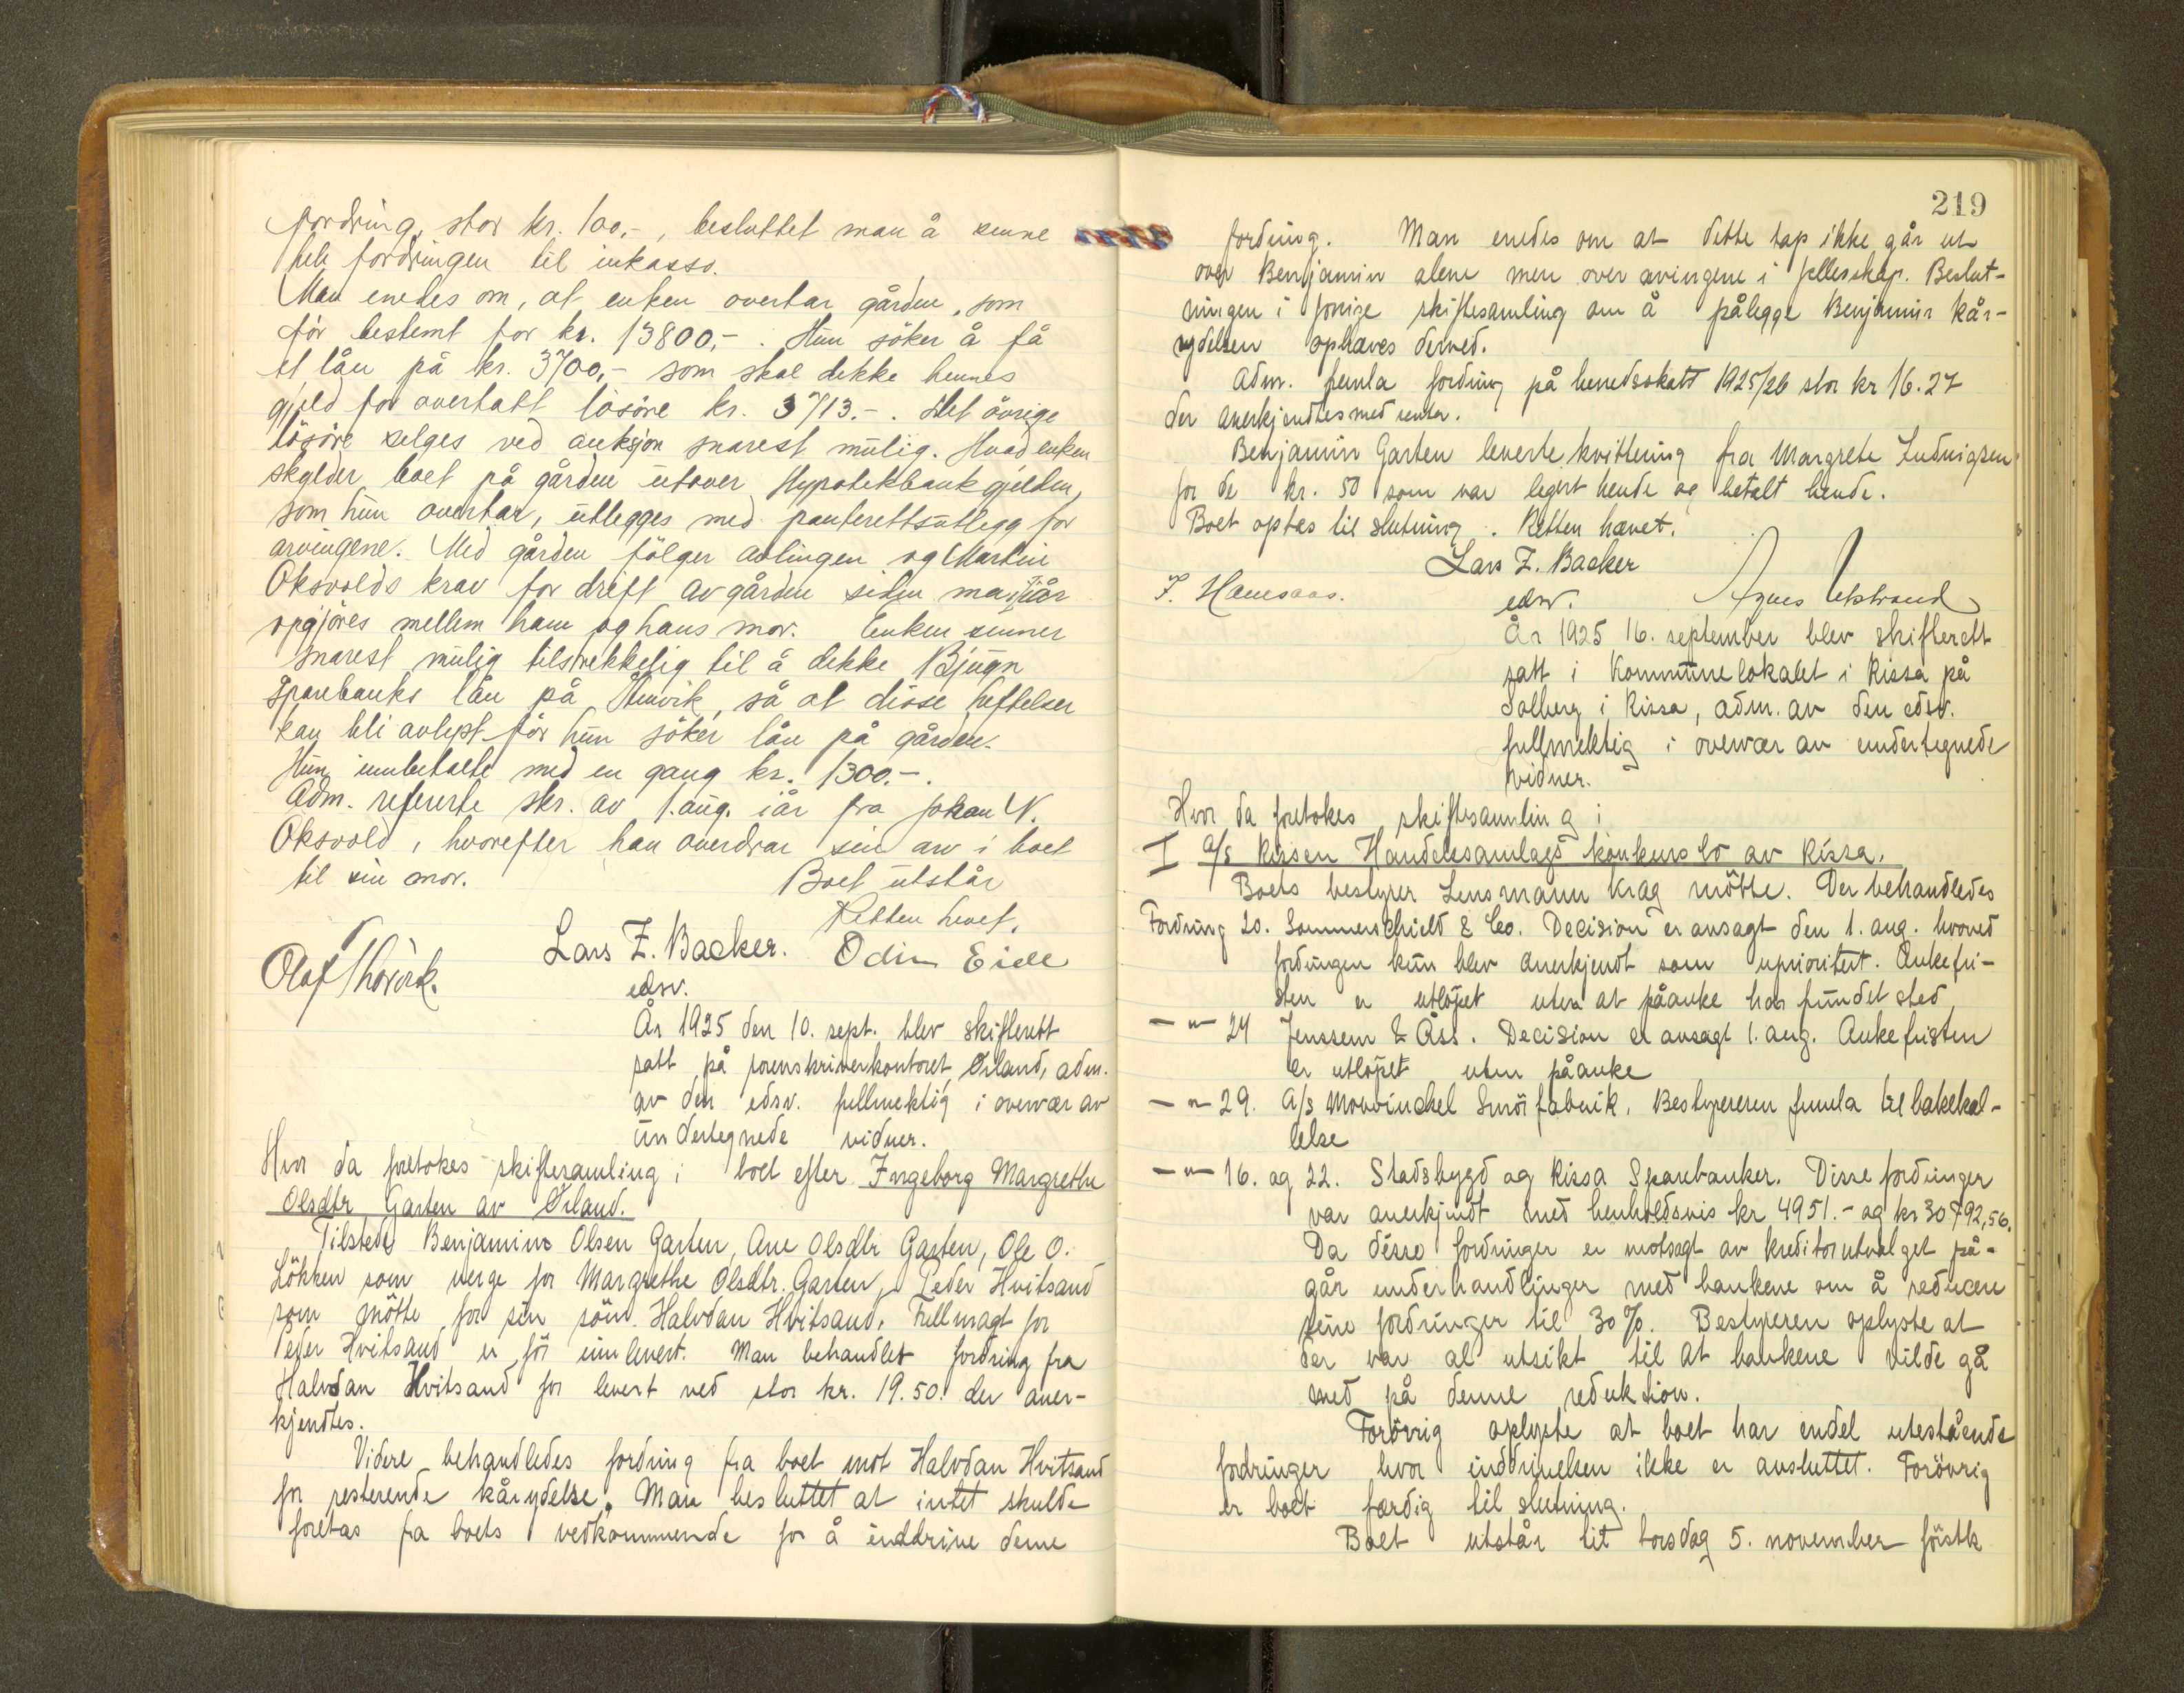 fordring, stor kr. 100,-, besluttet man å senne
hele fordringen til inkasso.
Man enedes om, at enken overtar gården, som
før bestemt for kr. 13800,-. Hun söker å få
et lån på kr. 3700,- som skal dekke hennes
gjeld for overtatt lösöre kr. 3713.-. Det övrige
lösöre selges ved auksjon snarest mulig. Hvad enken
skylder boet på gården utover Hypotekbankgjelden,
som hun overtar, utlegges med panterettsutlegg for
arvingene. Med gården fölger avlingen og Martin
Oksvolds krav for drift av gården siden mai iår
opgjöres mellem ham og hans mor. Enken senner
snarest mulig tilstrekkelig til å dekke Bjugn
Sparebanks lån på, så at disse heftelser
kan bli avlyst för hun söker lån på gården.
Hun innbetalte med en gang kr. 1300.-.
Adm. refererte skr. av 1. aug. iår fra Johan N.
Oksvold, hvorefter han overdrar sin arv i boet
til sin mor. Boet utstår
Retten hevet.
Olaf Lars Z. Backer. Odin Eide
edsv.
År 1925 den 10. sept. blev skifterett
satt på sorenskriverkontoret, Ørland, adm.
av den edsv. fullmektig i overvær av
undertegnede vidner.
Hvor da foretokes skiftesamling i boet efter Ingeborg Margrethe
Olsdtr. Garten av Ørland.
Tilstede Benjamin Olsen Garten, Ane Olsdtr Garten, Ole O.
Lökken som verge for Margrethe Olsdtr. Garten, Peder Hvitsand
som mötte for sin sönn Halvdan Hvitsand. Fullmagt for
Peder Hvitsand er för innlevert. Man behandlet fordring fra
Halvdan Hvitsand for levert ved stor kr. 19.50. der aner-
kjendtes.
Videre behandledes fordring fra boet mot Halvdan Hvitsand
for resterende kårydelse. Man besluttet at intet skulde
foretas fra boets vedkommende for å inddrive denne
219
fordring. Man enedes om at dette tap ikke går ut
over Benjamin alene men over arvingene i fellesskap. Beslut-
ningen i forrige skiftesamling om å pålegge Benjamin kår-
ydelsen ophæves derved.
Adm. femla fordring på herredsskatt 1925/26 stor kr 16.27
der anerkjendtes med renter.
Benjamin Garten leverte kvittering fra Margrete Ludvigsen
for de kr. 50 som var legert hende og betalt hende.
Boet optas til slutning. Retten hævet.
Lars Z. Backer
edsv. Agnes Utstrand
År 1925 16. september blev skifterett
satt i Kommunelokalet i Rissa på
Solberg i Rissa, adm. av den edsv.
fullmektig i overvær av undertegnede
vidner.
Hvor da foretokes skiftesamling i
I a/s Rissen Handelssamlags konkursbo av Rissa.
Boets bestyrer Lensmann Krag mötte. Der behandledes
Fordring 20. Sommerschield & Co. Decision er avsagt den 1. aug. hvorved
fordringen kun blev anerkjendt som uprioritert. Ankefri-
sten er utlöpet uten at påanke har fundet sted.
—"— 24 Jenssen & Åss. Decision er avsagt 1. aug. Ankefristen
er utlöpet uten påanke
—"— 29. A/s Mowinckel Smörfabrik. Bestyreren femla tilbakekal-
lelse
—"— 16. og 22. Stadsbygd og Rissa Sparebanker. Disse fordringer
var anerkjendt med henholdsvis kr 4951.- og kr 30792,56.
Da disse fordringer er motsagt av kreditorutvalget på-
går underhandlinger med bankene om å reducere
sine fordringer til 30%. Bestyreren oplyste at
der var al utsikt til at bankene vilde gå
med på denne reduktion.
Forövrig oplyste at boet har endel utestående
fordringer hvor inddrivelsen ikke er avsluttet. Forövrig
er boet færdig til slutning.
Boet utstår til torsdag 5. november förstk